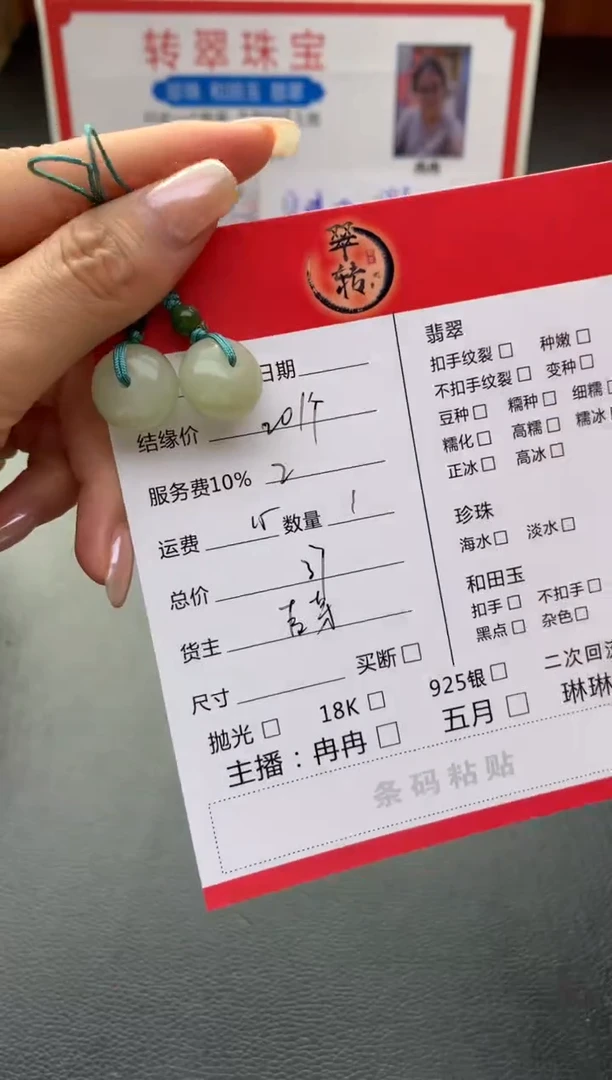 转翠珠宝
翡翠 和田玉 翡翠
翠
转
日期
结缘价 20个
服务费10% 2
运费 15 数量 1
总价 37
货主
尺寸 买断
抛光 18K 925银 二次回流
主播：冉冉 五月 琳琳
条码粘贴
翡翠
扣手纹裂 种嫩
不扣手纹裂 变种
豆种 糯种 细糯
糯化 高糯 糯冰
正冰 高冰
珍珠
海水 淡水
和田玉
扣手 不扣手
黑点 杂色